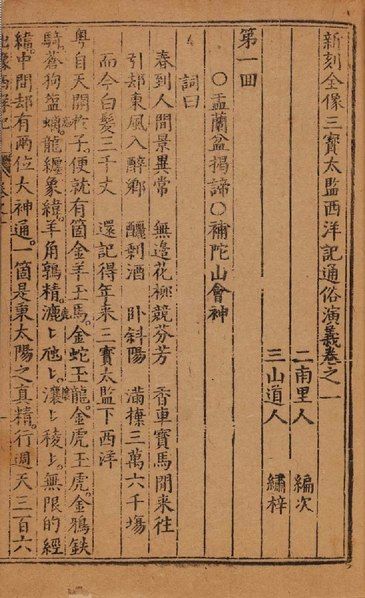 新刻全像三寶太監西洋記通俗演義卷之一
二南里人 編次
三山道人 繡梓
第一回
○盂蘭盆揭諦○補陀山會神
詞曰
春到人間景異常 無邊花柳競芬芳 香車寶馬閒來往
引却東風入醉鄉 釃剩酒 卧斜陽 滿攓三萬六千場
而今白髮三千丈 還記得年來三寶太監下西洋
粤自天開於子便就有箇金羊玉馬金蛇玉龍金虎玉虎金鴉鉄
騎蒼狗盐螭龍纏象緯羊角鶉精漉匕虺匕瀼匕稜匕無限的經
緯中間却有兩位大神通一箇是秉太陽之真精行週天三百六